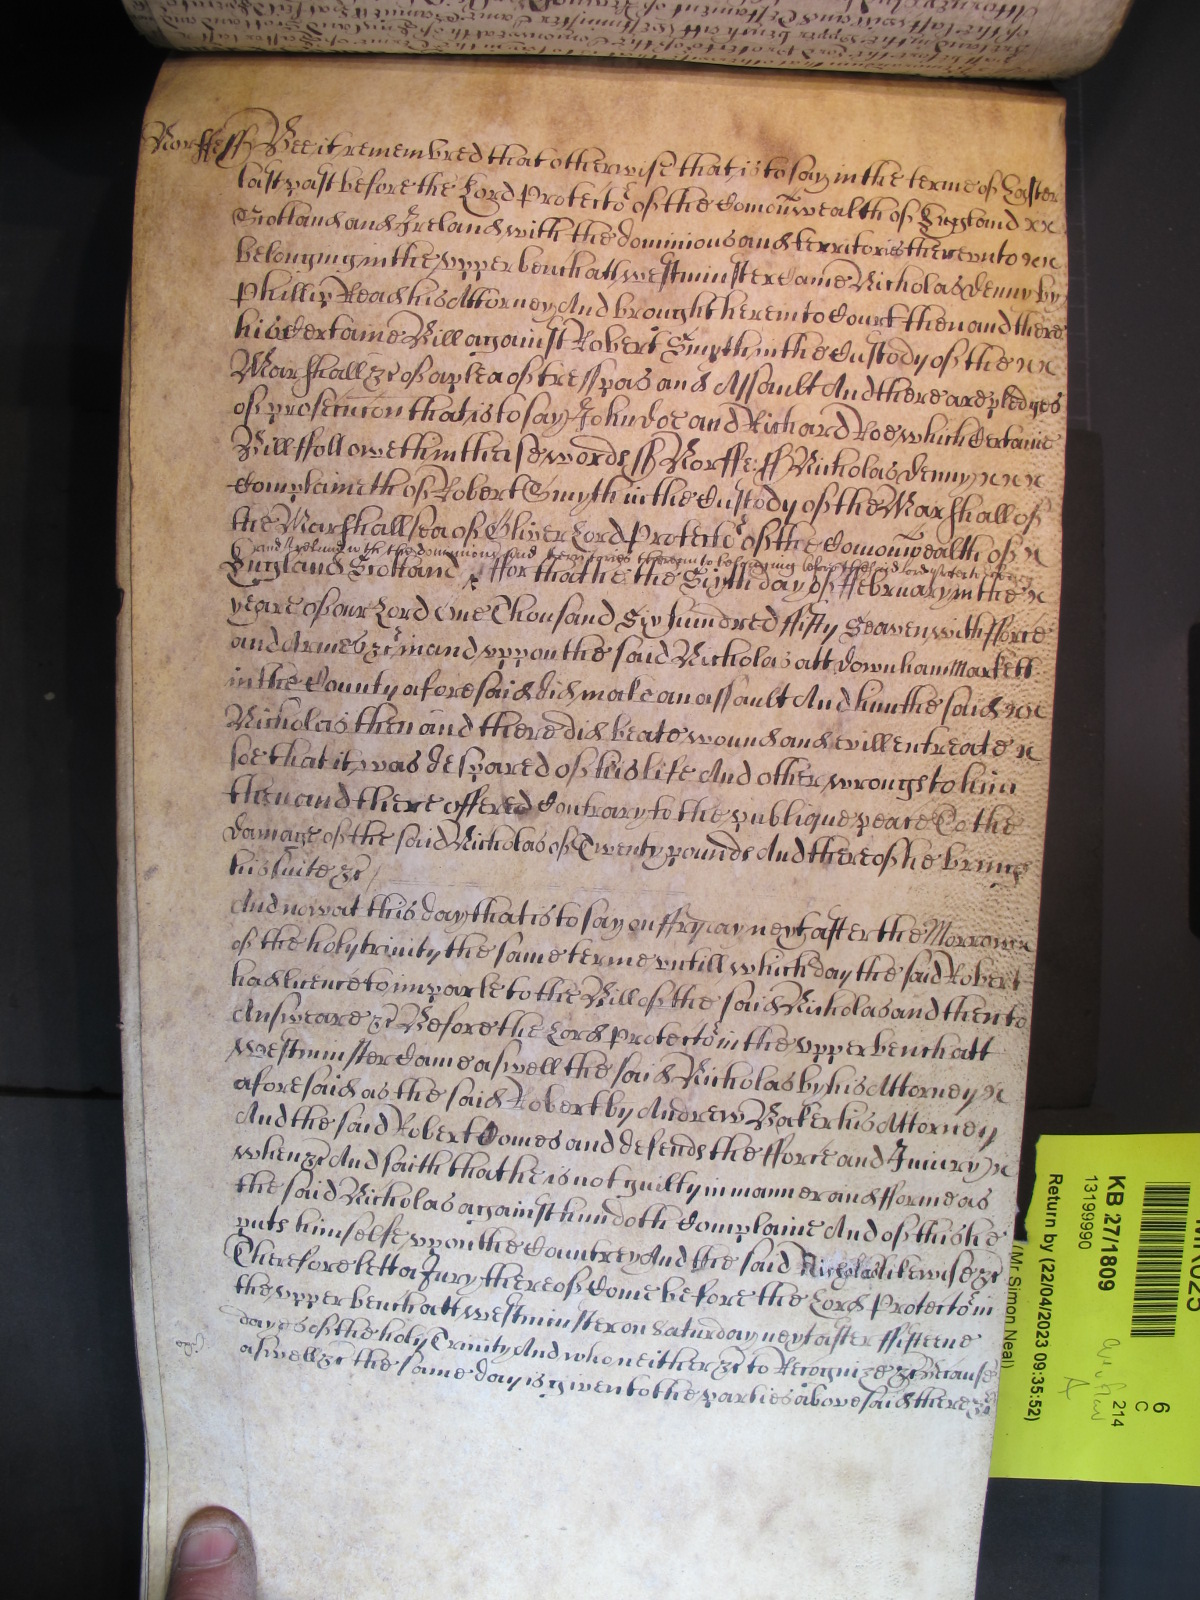 Norff ss Bee it remembred that otherwise that is to say in the terme of Easter
last past before the Lord Protector of the Comonwealth of England xx
Scotland and Ireland with the dominions and territories thereunto xx
belonging in the upper bench att westminster came Nicholas Denny by
Phillip Read his Attorney And brought here into Court then and there
his certaine Bill against Robert Smyth in the Custody of the xx
Marshall &c of a plea of trespas and Assault And there are pledges
of prosecution that is to say John Doe and Richard Roe which certaine
Bill followeth in these words ss Norff: ss Nicholas Denny xxx
Complaineth of Robert Smyth in the Custody of the Marshall of
the Marshallsea of Oliver Lord Protector of the Comonwealth of x
and Ireland with the dominions and territories thereunto belonging before the said lord protector
England Scotland ffor that he the Sixth day of ffebruary in the x
yeare of our Lord One Thousand Six hundred ffifty Seaven with fforce
and Armes &c in and uppon the said Nicholas att Downham Markett
in the County aforesaid did make an assault And him the said xx
Nicholas then and there did beate wound and evill entreate x
soe that it was despared of his life And other wrongs to him
then and there offered Contrary to the publique peace To the
damage of the said Nicholas of Twenty pounds And thereof he brings
his suite &c
And now att this day that is to say on ffryday next after the Morrow x
of the holy trinity the same terme untill which day the said Robert
had licence to imparle to the Bill of the said Nicholas and then to
Answeare &c Before the Lord Protector in the upper bench att
Westminster Came aswell the said Nicholas by his Attorney x
aforesaid as the said Robert by Andrew Baker his Attorney
And the said Robert Comes and defends the fforce and Iniury x
when &c And saith that he is not guilty in manner and fforme as
the said Nicholas against him doth Complaine And of this he
puts himselfe uppon the Countrey And the said Nicholas likewise &c
Therefore lett a Jury thereof Come before the Lord Protector in
the upper bench att westminster on Saturday next after ffifteene
dayes of the holy Trinity And who neither &c to Recognize &c Because
aswell &c the same day is given to the parties above said there &c
KB 27/1809
13199990
Return by (22/04/2023 09:35:52)
(Mr Simon Neal)
6
C
214